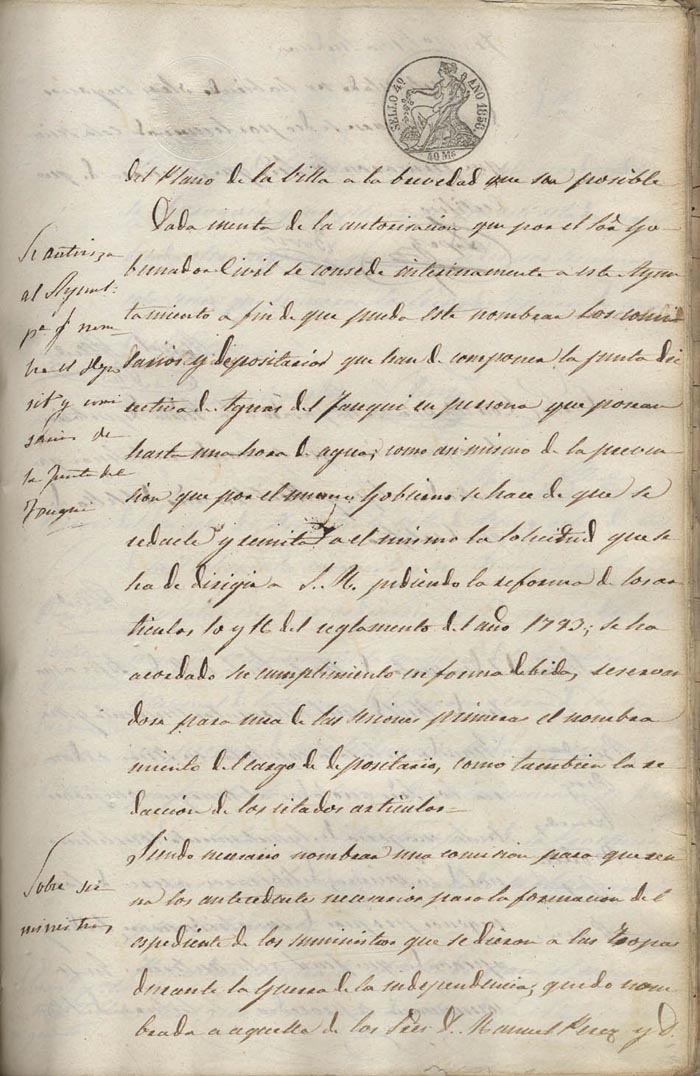 SELLO 4º AÑO 1856
40 Ms
del Plano de la Villa a la brevedad que sea posible
Se autoriza
al Ayunt.
pª q. nom-
bre el depo
sit. y comi
sarios de
la Junta del
Dada cuenta de la autorizacion que por el Sor Go-
bernador Civil se consede interinamente a este Ayun
tamiento a fin de que pueda este nombrar los comi
sarios y depositarios que han de componer la junta di
rectiva de Aguas del en persona que posean
hasta una hora de agua, como asi mismo de la preven
sion que por el mismo Gobierno se hace de que se
redacte y remita a el mismo la solicitud que se
ha de dirigir a S. M. pidiendo la reforma de los ar
ticulos 10 y 16 del reglamento del año 1793; se ha
acordado su cumplimiento en forma debida, reservan
dose para una de las sesiones primeras el nombra
miento del cargo de depositario, como tambien la re
daccion de los citados articulos=
Sobre su-
ministros
Siendo necesario nombrar una comision para que reu
na los antecedentes necesarios para la formacion del
espediente de los suministros que se dieron a las tropas
durante la Guerra de la independencia, quedo nom
brada a aquella de los Sres D. Manuel Perez y D.